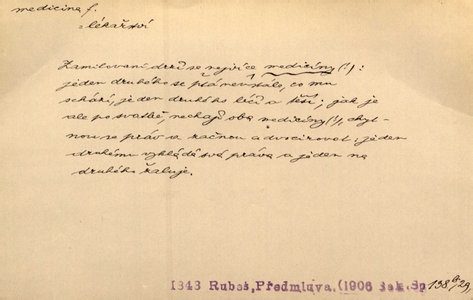 medicina f.
lékařství
Zamilovaní drží se nejvíce medicíny (!) :
jeden druhého se ptá neustále, co mu
schází, jeden druhého léčí a těší; jak je
ale po svatbě, nechají oba medicíny (!), chyt-
nou se práv a začnou advocírovat, jeden
druhému vykládá svá práva a jeden na
druhého žaluje.
1843 Rubeš, Předmluva. (1906 Seb. Sp